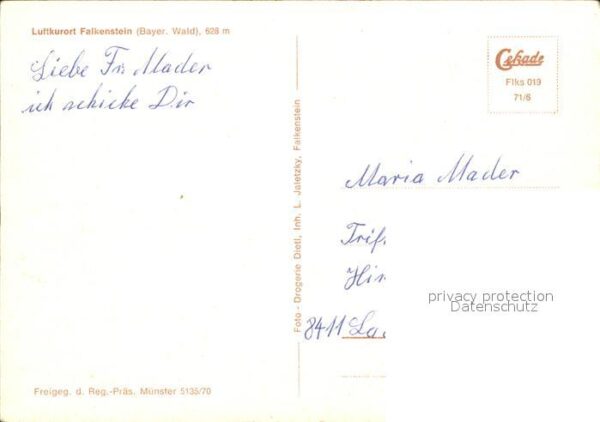 Luftkurort Falkenstein (Bayer. Wald), 628 m
Liebe Fr. Mader
ich schicke Dir
Foto - Drogerie Dietl, Inh. L. Jaletzky, Falkenstein
Cekade
Flks 019
71/6
Maria Mader
8411
privacy protection
Datenschutz
Freigeg. d. Reg.-Präs. Münster 5135/70